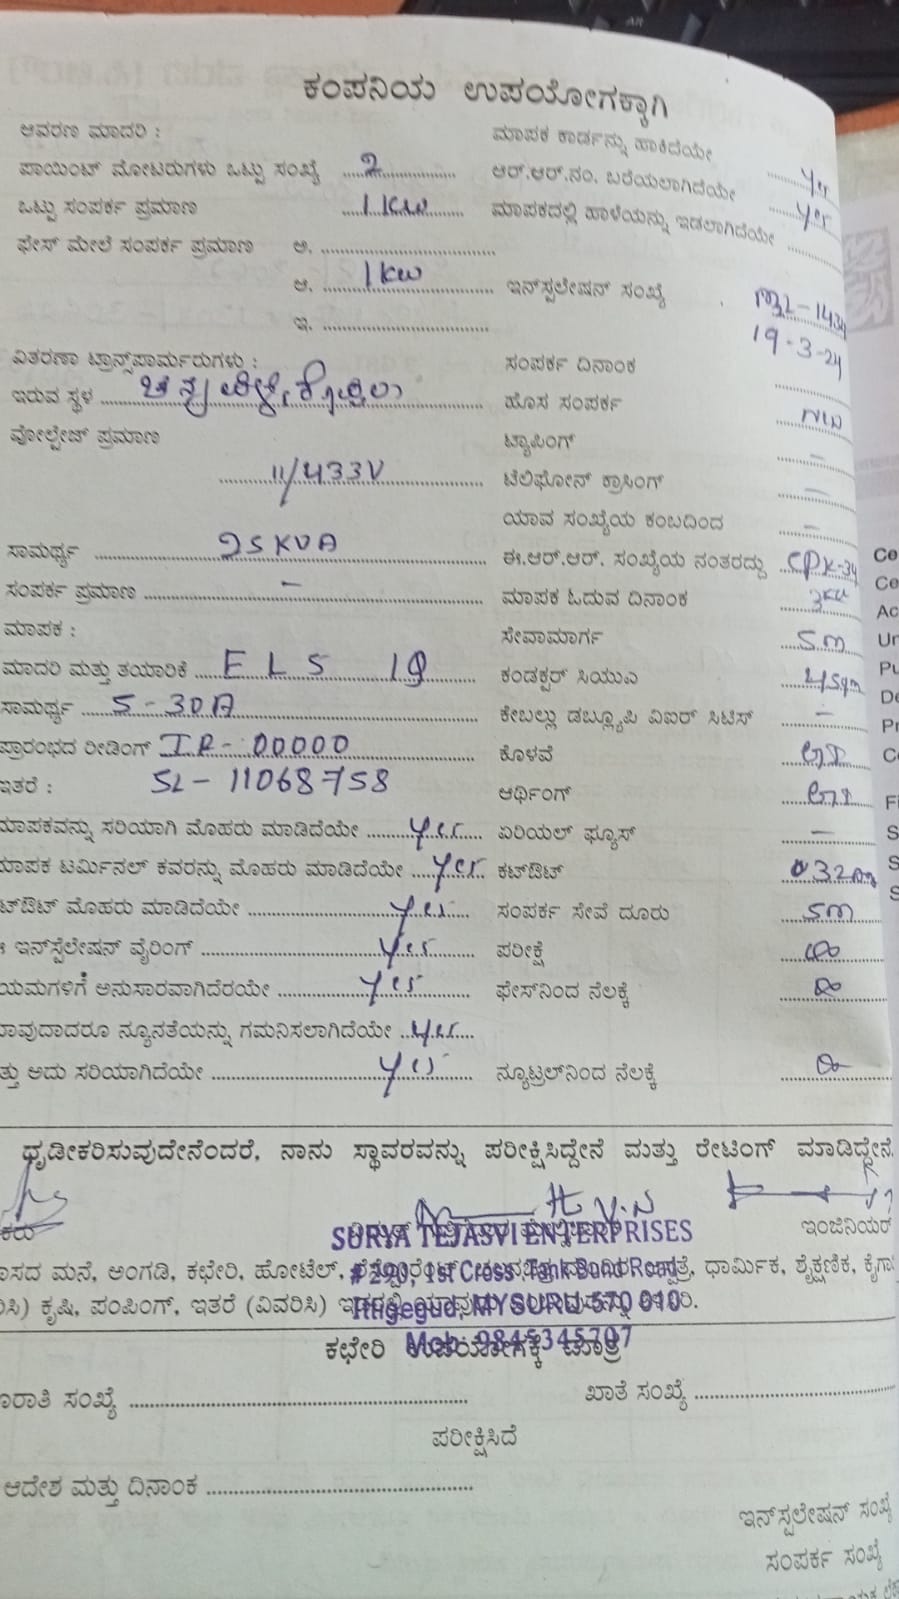 ಕಂಪನಿಯ ಉಪಯೋಗಕ್ಕಾಗಿ
ಆವರಣ ಮಾದರಿ : ಮಾಪಕ ಕಾರ್ಡನ್ನು ಹಾಕಿದೆಯೇ Yes
ಪಾಯಿಂಟ್ ಮೋಟರುಗಳು ಒಟ್ಟು ಸಂಖ್ಯೆ 2 ಆರ್.ಆರ್.ನಂ. ಬರೆಯಲಾಗಿದೆಯೇ Yes
ಒಟ್ಟು ಸಂಪರ್ಕ ಪ್ರಮಾಣ 1 KW ಮಾಪಕದಲ್ಲಿ ಹಾಳೆಯನ್ನು ಇಡಲಾಗಿದೆಯೇ
ಫೇಸ್ ಮೇಲೆ ಸಂಪರ್ಕ ಪ್ರಮಾಣ ಅ.
ಆ. 1 KW ಇನ್‌ಸ್ಪಲೇಷನ್ ಸಂಖ್ಯೆ
ಇ. 19-3-24
ವಿತರಣಾ ಟ್ರಾನ್ಸ್‌ಫಾರ್ಮರುಗಳು : ಸಂಪರ್ಕ ದಿನಾಂಕ
ಇರುವ ಸ್ಥಳ ಹೊಸ ಸಂಪರ್ಕ
ವೋಲ್ಟೇಜ್ ಪ್ರಮಾಣ ಟ್ಯಾಪಿಂಗ್ –
11/433V ಟೆಲಿಫೋನ್ ಕ್ರಾಸಿಂಗ್ –
ಯಾವ ಸಂಖ್ಯೆಯ ಕಂಬದಿಂದ –
ಸಾಮರ್ಥ್ಯ 25 KVA ಈ.ಆರ್.ಆರ್. ಸಂಖ್ಯೆಯ ನಂತರದ್ದು CPK-34
ಸಂಪರ್ಕ ಪ್ರಮಾಣ – ಮಾಪಕ ಓದುವ ದಿನಾಂಕ
ಮಾಪಕ : ಸೇವಾಮಾರ್ಗ 5m
ಮಾದರಿ ಮತ್ತು ತಯಾರಿಕೆ ELS ಕಂಡಕ್ಟರ್ ಸಿಯುಎ 4sqm
ಸಾಮರ್ಥ್ಯ 5-30A ಕೇಬಲ್ಲು ಡಬ್ಲ್ಯೂಪಿ ವಿಐರ್ ಸಿಟಿಸ್ –
ಪ್ರಾರಂಭದ ರೀಡಿಂಗ್ IR-00000 ಕೊಳವೆ GI
ಇತರೆ : SL-11068758 ಆರ್ಥಿಂಗ್ GI
ಮಾಪಕವನ್ನು ಸರಿಯಾಗಿ ಮೊಹರು ಮಾಡಿದೆಯೇ Yes ಏರಿಯಲ್ ಫ್ಯೂಸ್ –
ಮಾಪಕ ಟರ್ಮಿನಲ್ ಕವರನ್ನು ಮೊಹರು ಮಾಡಿದೆಯೇ Yes ಕಟ್‌ಔಟ್
ಟ್‌ಔಟ್ ಮೊಹರು ಮಾಡಿದೆಯೇ Yes ಸಂಪರ್ಕ ಸೇವೆ ದೂರು 5m
ಇನ್‌ಸ್ಪೆಲೇಷನ್ ವೈರಿಂಗ್ Yes ಪರೀಕ್ಷೆ
ಯಮಗಳಿಗೆ ಅನುಸಾರವಾಗಿದೆರಯೇ Yes ಫೇಸ್‌ನಿಂದ ನೆಲಕ್ಕೆ
ಾವುದಾದರೂ ನ್ಯೂನತೆಯನ್ನು ಗಮನಿಸಲಾಗಿದೆಯೇ Yes
ತ್ತು ಅದು ಸರಿಯಾಗಿದೆಯೇ Yes ನ್ಯೂಟ್ರಲ್‌ನಿಂದ ನೆಲಕ್ಕೆ
ಧೃಡೀಕರಿಸುವುದೇನೆಂದರೆ, ನಾನು ಸ್ಥಾವರವನ್ನು ಪರೀಕ್ಷಿಸಿದ್ದೇನೆ ಮತ್ತು ರೇಟಿಂಗ್ ಮಾಡಿದ್ದೇನೆ.
ಇಂಜಿನಿಯರ್
SURYA TEJASVI ENTERPRISES
ಾಸದ ಮನೆ, ಅಂಗಡಿ, ಕಛೇರಿ, ಹೋಟೆಲ್, ಧಾರ್ಮಿಕ, ಶೈಕ್ಷಣಿಕ,
# 290, 1st Cross, Tank Bund Road
ಸಿ) ಕೃಷಿ, ಪಂಪಿಂಗ್, ಇತರೆ (ವಿವರಿಸಿ)
Ittigegud, MYSURU-570 010
Mob: 9845345707
ಕಛೇರಿ ಉಪಯೋಗಕ್ಕೆ ಮಾತ್ರ
ರಾತಿ ಸಂಖ್ಯೆ ಖಾತೆ ಸಂಖ್ಯೆ
ಪರೀಕ್ಷಿಸಿದೆ
ಆದೇಶ ಮತ್ತು ದಿನಾಂಕ
ಇನ್‌ಸ್ಪಲೇಷನ್ ಸಂಖ್ಯೆ
ಸಂಪರ್ಕ ಸಂಖ್ಯೆ